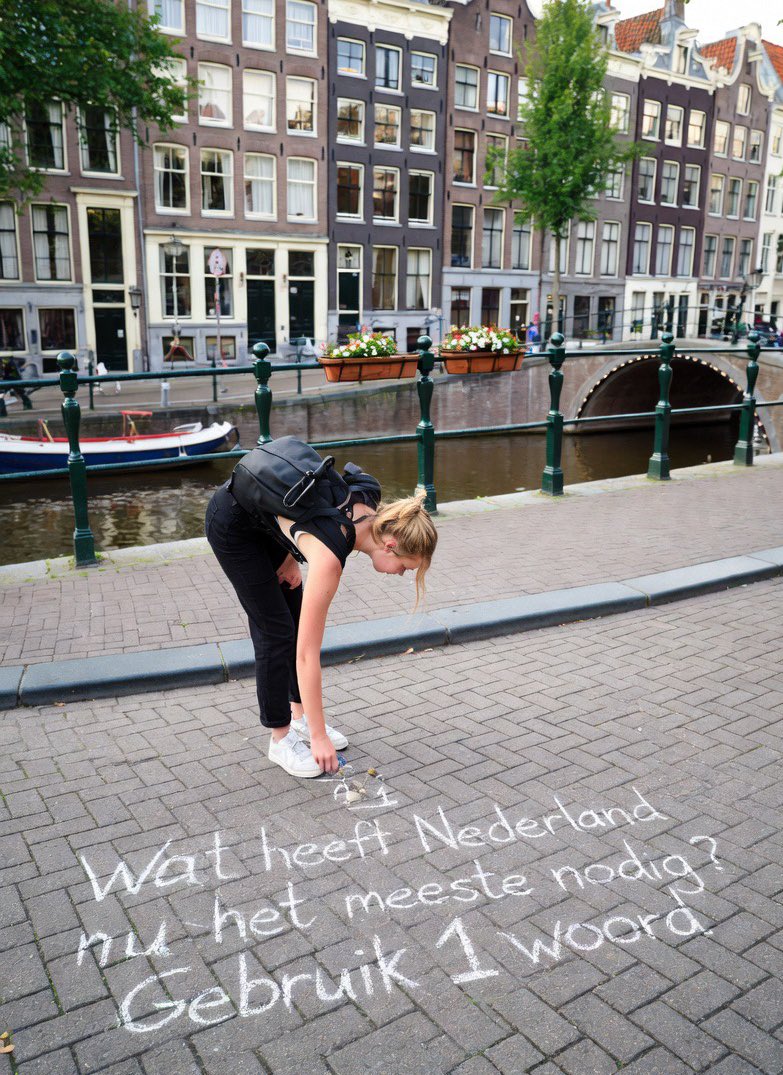 Wat heeft Nederland
nu het meeste nodig?
Gebruik 1 woord.